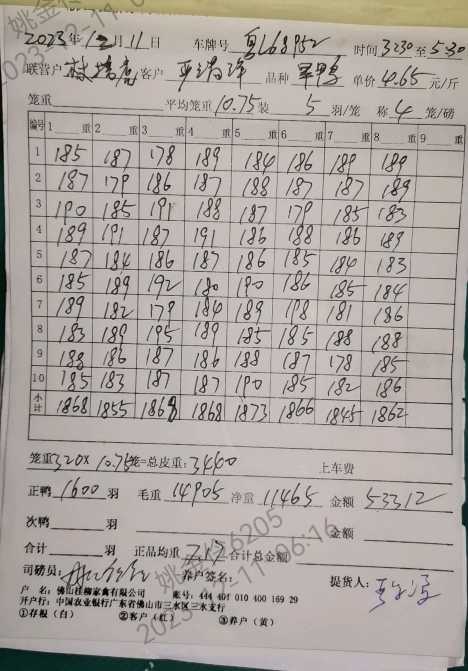 2023年12月11日 车牌号 粤L68952 时间 3230至530
联营户 客户 品种 单鸭 单价 4.65 元/斤
笼重 平均笼重 10.75 装 5 羽/笼 称 4 笼/磅
编号 1 重 2 重 3 重 4 重 5 重 6 重 7 重 8 重 9 重
1 185 187 178 189 184 186 189 189
2 187 179 186 187 188 187 187 189
3 190 185 191 188 187 179 185 183
4 189 191 187 191 186 188 186 189
5 187 184 186 187 186 185 184 183
6 185 189 192 180 190 186 185 184
7 189 182 179 184 189 198 181 186
8 183 189 195 189 185 185 188 188
9 188 186 187 186 188 187 178 185
10 185 183 187 187 190 185 182 186
小计 1868 1855 1868 1868 1873 1866 1845 1862
笼重 320X 10.75 笼=总皮重: 3440 上车费
正鸭 1600 羽 毛重 14905 净重 11465 金额 53312
次鸭 羽 金额
合计 羽 正品均重 7.17 合计总金额
司磅员: 养户签名: 提货人:
户 名: 佛山桂柳家禽有限公司 账号: 444 401 010 400 169 29
开户行: 中国农业银行广东省佛山市三水区三水支行
①存根(白) ②客户(红) ③养户(黄)